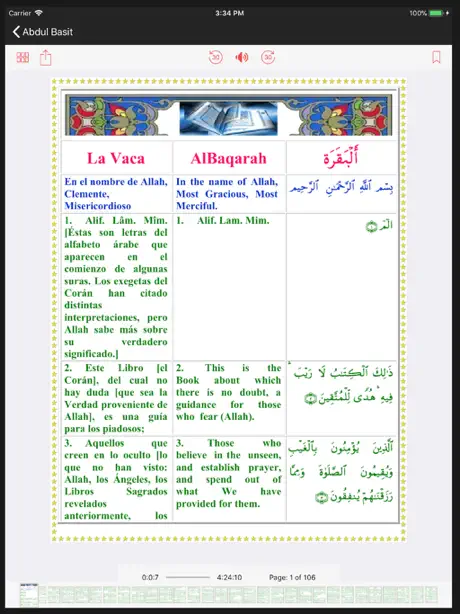 Carrier
3:34 PM
100%
Abdul Basit
30
30
La Vaca
AlBaqarah
أَلْبَقَرَة
En el nombre de Allah,
Clemente,
Misericordioso
In the name of Allah,
Most Gracious, Most
Merciful.
بِسْمِ ٱللَّهِ ٱلرَّحْمَٰنِ ٱلرَّحِيمِ
1. Alif. Lâm. Mîm.
[Éstas son letras del
alfabeto árabe que
aparecen en el
comienzo de algunas
suras. Los exegetas del
Corán han citado
distintas
interpretaciones, pero
Allah sabe más sobre
su verdadero
significado.]
1. Alif. Lam. Mim.
الٓمٓ
2. Este Libro [el
Corán], del cual no
hay duda [que sea la
Verdad proveniente de
Allah], es una guía
para los piadosos;
2. This is the
Book about which
there is no doubt, a
guidance for those
who fear (Allah).
ذَٰلِكَ ٱلْكِتَٰبُ لَا رَيْبَ ۛ
فِيهِ ۛ هُدًى لِّلْمُتَّقِينَ
3. Aquellos que
creen en lo oculto [lo
que no han visto:
Allah, los Ángeles, los
Libros Sagrados
revelados
anteriormente, los
3. Those who
believe in the unseen,
and establish prayer,
and spend out of
what We have
provided for them.
ٱلَّذِينَ يُؤْمِنُونَ بِٱلْغَيْبِ
وَيُقِيمُونَ ٱلصَّلَوٰةَ وَمِمَّا
رَزَقْنَٰهُمْ يُنفِقُونَ
0:0:7
4:24:10
Page: 1 of 106